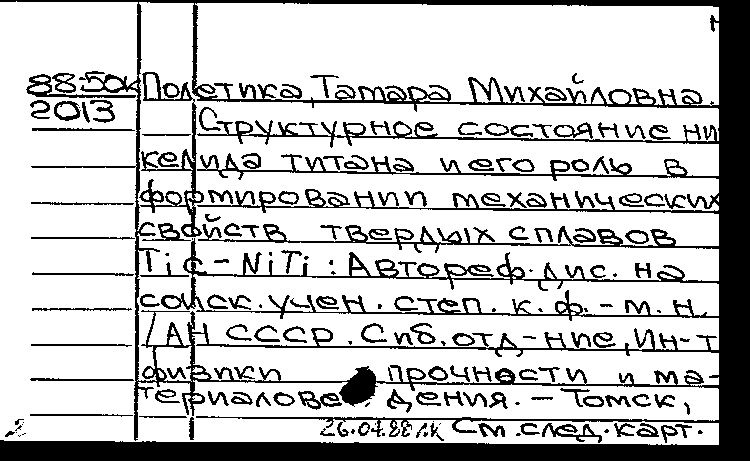 88-50к Полетика, Тамара Михайловна.
2013 Структурное состояние ни
келида титана и его роль в
формировании механических
свойств твердых сплавов
TiC-NiTi: Автореф. дис. на
соиск. учен. степ. к. ф.-м. н.
/АН СССР. Сиб. отд-ние, Ин-т
физики прочности и ма-
териаловедения. - Томск,
2 26.04.88 См. след. карт.